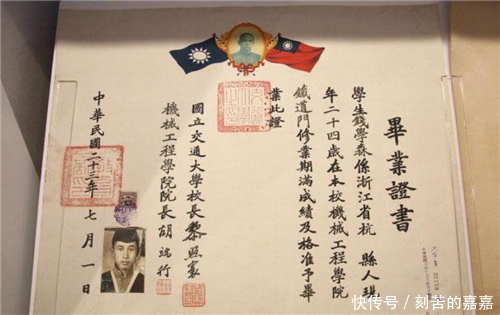 畢業證書
學生錢學森係浙江省杭 縣人現
年二十四歲在本校機械工程學院
鐵道門修業期滿成績及格准予畢
業此證
國立交通大學校長黎照寰
機械工程學院院長胡端行
中華民國二十三年七月一日
快传号/刻苦的嘉嘉